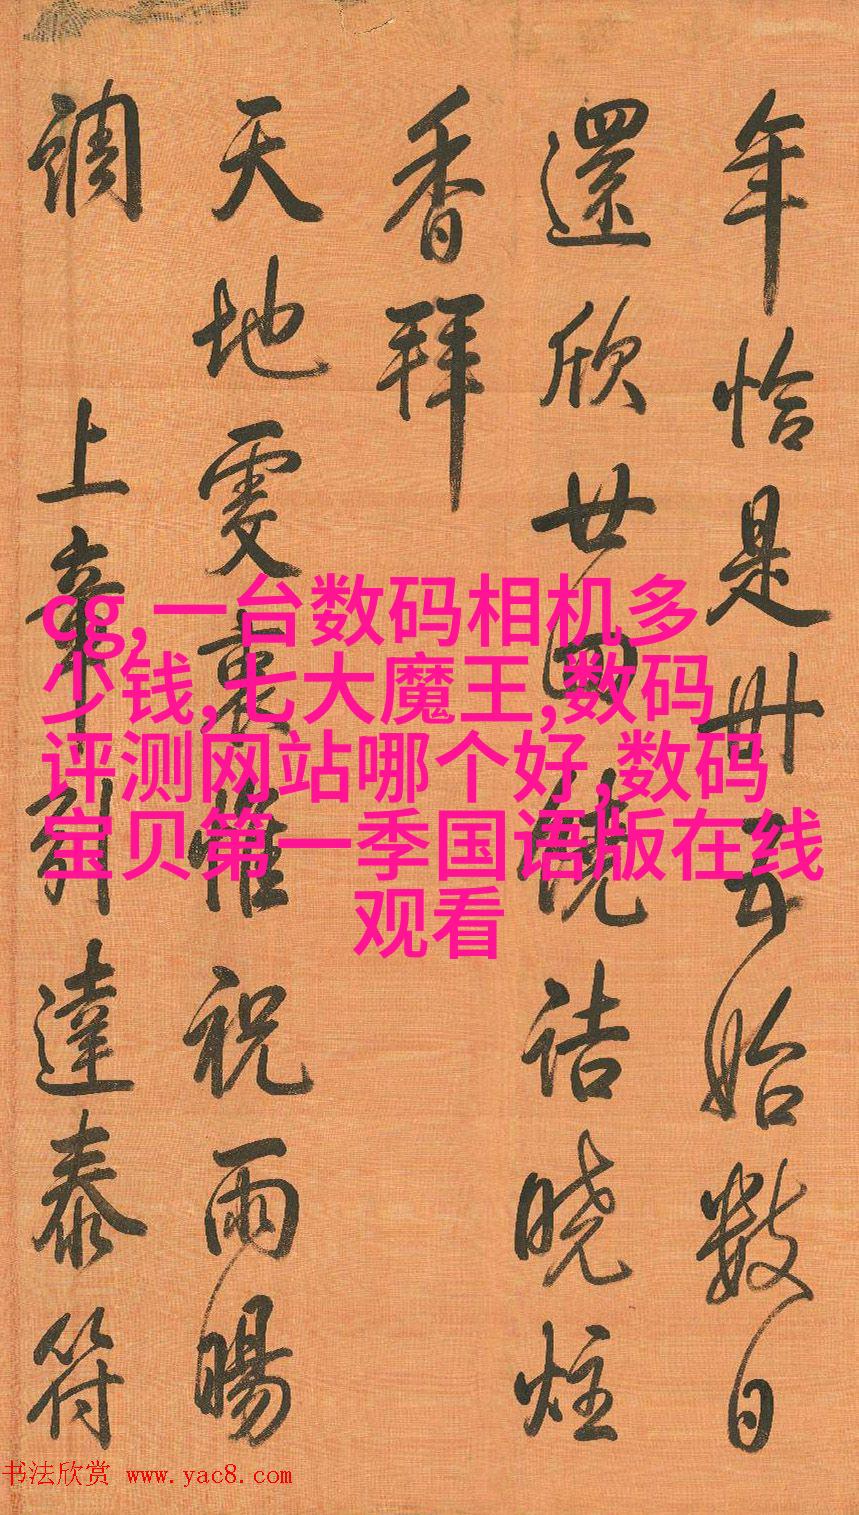 年恰是卅始數日
還欣廿詰曉炷
香拜
天地虔衷惟祝雨暘
調 上辛達泰符
cg,一台数码相机多
少钱,七大魔王,数码
评测网站哪个好,数码
宝贝第一季国语版在线
观看
书法欣赏 www.yac8.com